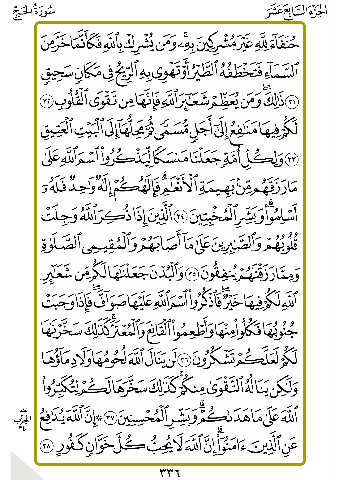 الجزء السابع عشر سورة الحج
حُنَفَآءَ لِلَّهِ غَيْرَ مُشْرِكِينَ بِهِۦ ۚ وَمَن يُشْرِكْ بِٱللَّهِ فَكَأَنَّمَا خَرَّ مِنَ
ٱلسَّمَآءِ فَتَخْطَفُهُ ٱلطَّيْرُ أَوْ تَهْوِى بِهِ ٱلرِّيحُ فِى مَكَانٍ سَحِيقٍ
﴿٣١﴾ ذَٰلِكَ وَمَن يُعَظِّمْ شَعَـٰٓئِرَ ٱللَّهِ فَإِنَّهَا مِن تَقْوَى ٱلْقُلُوبِ ﴿٣٢﴾
لَكُمْ فِيهَا مَنَـٰفِعُ إِلَىٰٓ أَجَلٍ مُّسَمًّى ثُمَّ مَحِلُّهَآ إِلَى ٱلْبَيْتِ ٱلْعَتِيقِ
﴿٣٣﴾ وَلِكُلِّ أُمَّةٍ جَعَلْنَا مَنسَكًا لِّيَذْكُرُوا۟ ٱسْمَ ٱللَّهِ عَلَىٰ
مَا رَزَقَهُم مِّنۢ بَهِيمَةِ ٱلْأَنْعَـٰمِ ۗ فَإِلَـٰهُكُمْ إِلَـٰهٌ وَٰحِدٌ فَلَهُۥٓ
أَسْلِمُوا۟ ۗ وَبَشِّرِ ٱلْمُخْبِتِينَ ﴿٣٤﴾ ٱلَّذِينَ إِذَا ذُكِرَ ٱللَّهُ وَجِلَتْ
قُلُوبُهُمْ وَٱلصَّـٰبِرِينَ عَلَىٰ مَآ أَصَابَهُمْ وَٱلْمُقِيمِى ٱلصَّلَوٰةِ
وَمِمَّا رَزَقْنَـٰهُمْ يُنفِقُونَ ﴿٣٥﴾ وَٱلْبُدْنَ جَعَلْنَـٰهَا لَكُم مِّن شَعَـٰٓئِرِ
ٱللَّهِ لَكُمْ فِيهَا خَيْرٌ ۖ فَٱذْكُرُوا۟ ٱسْمَ ٱللَّهِ عَلَيْهَا صَوَآفَّ ۖ فَإِذَا وَجَبَتْ
جُنُوبُهَا فَكُلُوا۟ مِنْهَا وَأَطْعِمُوا۟ ٱلْقَانِعَ وَٱلْمُعْتَرَّ ۚ كَذَٰلِكَ سَخَّرْنَـٰهَا
لَكُمْ لَعَلَّكُمْ تَشْكُرُونَ ﴿٣٦﴾ لَن يَنَالَ ٱللَّهَ لُحُومُهَا وَلَا دِمَآؤُهَا
وَلَـٰكِن يَنَالُهُ ٱلتَّقْوَىٰ مِنكُمْ ۚ كَذَٰلِكَ سَخَّرَهَا لَكُمْ لِتُكَبِّرُوا۟
ٱللَّهَ عَلَىٰ مَا هَدَىٰكُمْ ۗ وَبَشِّرِ ٱلْمُحْسِنِينَ ﴿٣٧﴾ ۞ إِنَّ ٱللَّهَ يُدَٰفِعُ
عَنِ ٱلَّذِينَ ءَامَنُوٓا۟ ۗ إِنَّ ٱللَّهَ لَا يُحِبُّ كُلَّ خَوَّانٍ كَفُورٍ ﴿٣٨﴾
٣٣٦